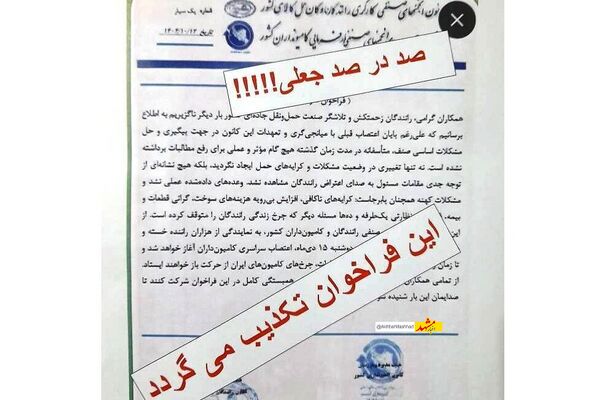 کانون انجمنهای صنفی کارگری رانندگان
حمل کالای کشور
شماره: یک سیار
انجمنهای صنفی کارفرمایی کامیونداران کشور
تاریخ
صد در صد جعلی!!!!!
فراخوان
همکاران گرامی، رانندگان زحمتکش و تلاشگر صنعت حمل‌ونقل جاده‌ای بار دیگر ناگزیریم به اطلاع
برسانیم که علی‌رغم پایان اعتصاب قبلی با میانجی‌گری و تعهدات این کانون در جهت پیگیری و حل
مشکلات اساسی صنف، متأسفانه در مدت زمان گذشته هیچ گام مؤثر و عملی برای رفع مطالبات برداشته
نشده است. نه تنها تغییری در وضعیت مشکلات و کرایه‌های حمل ایجاد نگردید، بلکه هیچ نشانه‌ای از
توجه جدی مقامات مسئول به صدای اعتراض رانندگان مشاهده نشد. وعده‌های داده‌شده عملی نشد و
مشکلات کهنه همچنان پابرجاست: کرایه‌های ناکافی، افزایش بی‌رویه هزینه‌های سوخت، گرانی قطعات و
بیمه، نظارتی یک‌طرفه و ده‌ها مسئله دیگر که چرخ زندگی رانندگان را متوقف کرده است. از
این صنفی رانندگان و کامیون‌داران کشور، به نمایندگی از هزاران راننده خسته و
دوشنبه ۱۵ دی‌ماه، اعتصاب سراسری کامیون‌داران آغاز خواهد شد و
تا زمان چرخ‌های کامیون‌های ایران از حرکت باز خواهند ایستاد.
از تمامی همکاران همبستگی کامل در این فراخوان شرکت کنند تا
صدایمان این بار شنیده
این فراخوان تکذیب می گردد
مشهد